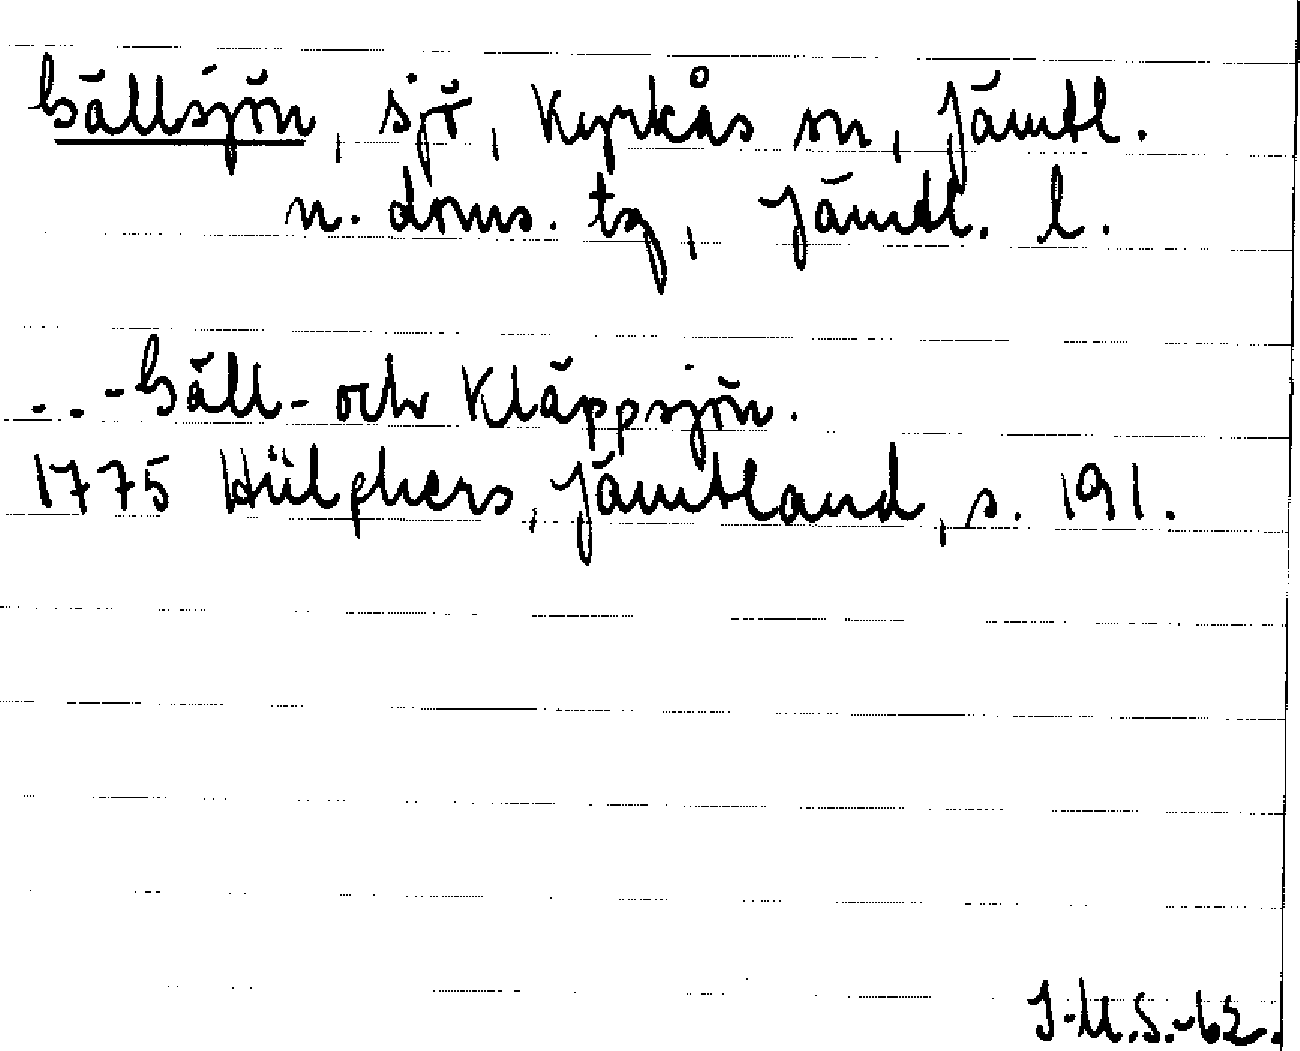 Gällsjön, sjö, Kyrkås sn, Jämtl.
n. doms. tg, Jämtl. l.
. . - Gäll- och Kläppsjön.
1775 Hülphers, Jämtland, s. 191.
I.M.S.-62.